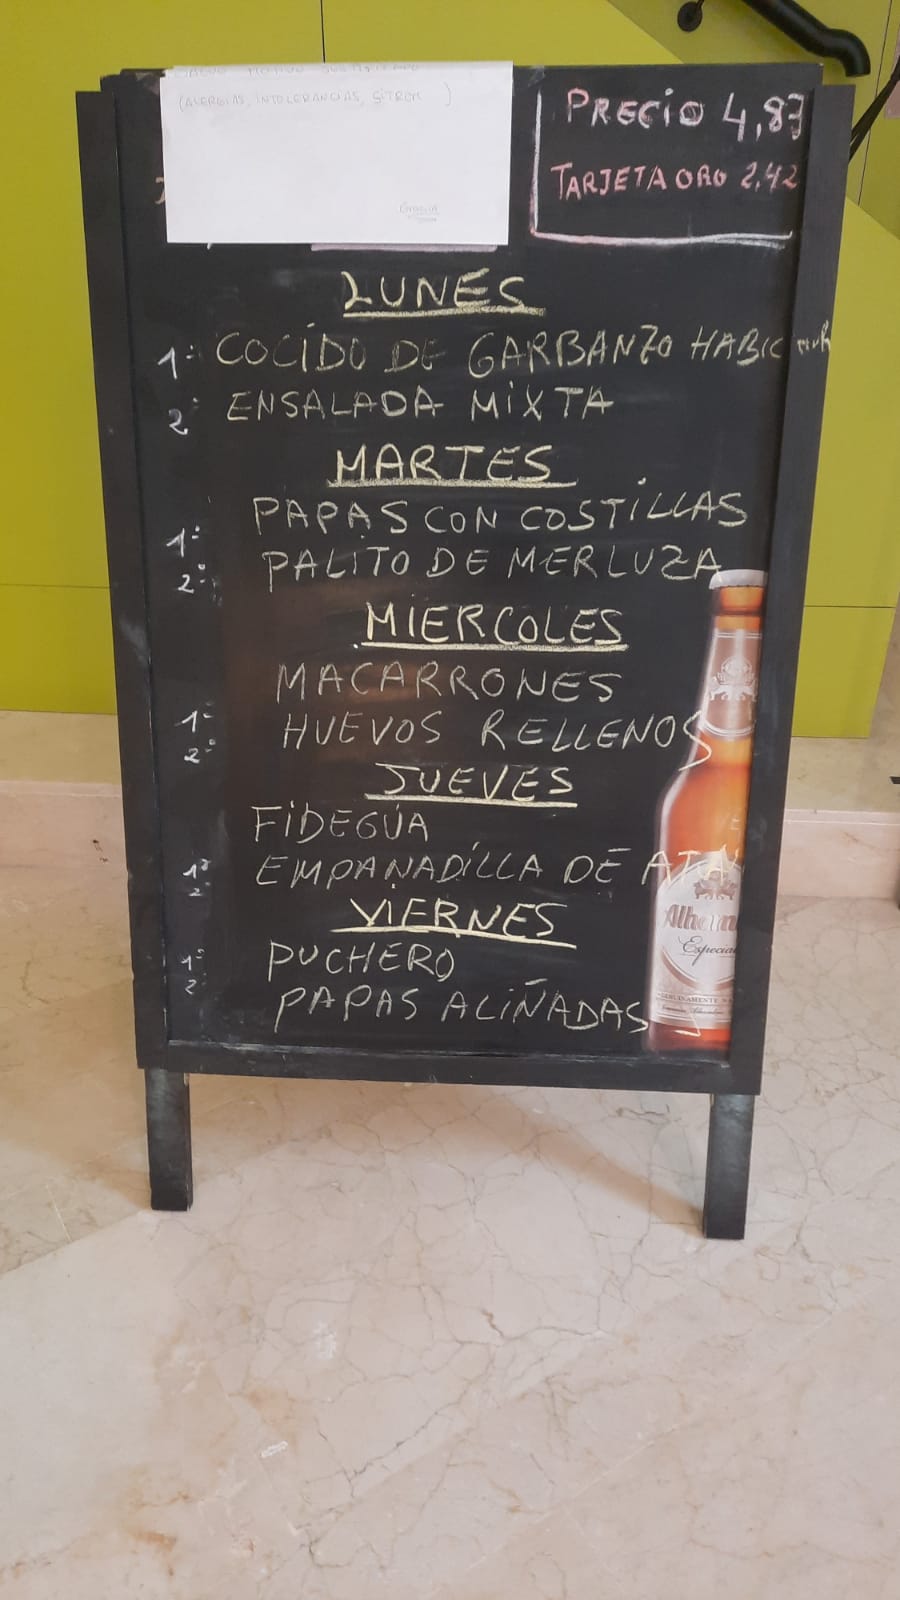 SALVO MOTIVO JUSTIFICADO
(ALERGIAS, INTOLERANCIAS, SÍTROM )
GRACIAS
PRECIO 4,83
TARJETA ORO 2,42
LUNES
1º COCIDO DE GARBANZO HABIC
2º ENSALADA MIXTA
MARTES
1º PAPAS CON COSTILLAS
2º PALITO DE MERLUZA
MIERCOLES
1º MACARRONES
2º HUEVOS RELLENOS
JUEVES
1º FIDEGÚA
2º EMPANADÍLLA DE ATÚN
VIERNES
1º PUCHERO
2º PAPAS ALIÑADAS
Alham
Especial
GENUINAMENTE